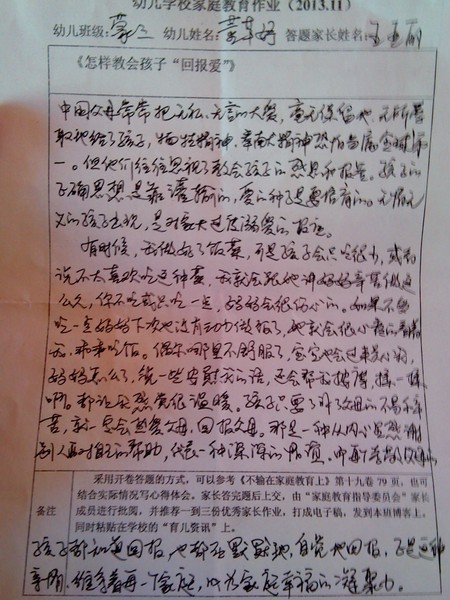 幼儿学校家庭教育作业（2013.11）
幼儿班级：蒙三 幼儿姓名： 答题家长姓名：王亚丽
《怎样教会孩子“回报爱”》
中国父母常常把无私、无言的大爱，毫无保留地、无所
取地给了孩子，牺牲精神、奉献精神恐怕当属全球第
一。但他们往往忽视了教会孩子的感恩和报答。孩子的
正确思想是靠灌输的，爱的种子是要培育的。无情无
义的孩子出现，是对家长过度溺爱的报应。
有时候，我做好了饭菜，可是孩子会只吃很少，或者
说不太喜欢吃这种菜，我就会跟她讲妈妈辛苦做这
么久，你不吃或只吃一点，妈妈会很伤心的。如果不多
吃一点妈妈下次也没有动力做饭了，她就会很心疼的看着
我，乖乖吃饭。偶尔哪里不舒服了，宝宝也会过来关心我，
妈妈怎么了，说一些安慰我的话，还会帮我按摩，揉一揉
啊。都让我感觉很温暖。孩子只要了解了父母的不易和辛
苦，就一定会热爱父母，回报父母。那是一种从内心感谢
别人对自己的帮助，
备注
采用开卷答题的方式，可以参考《不输在家庭教育上》第十九卷 79 页，也可
结合实际情况写心得体会。家长答完题后上交，由“家庭教育指导委员会”家长
成员进行批阅，并推荐一到三份优秀家长作业，打成电子稿，发到本班博客上，
同时粘贴在学校的“育儿资讯”上。
孩子都知道回报，也都在默默地、自觉地回报，正是这种
亲情，维系着每一个家庭，成为家庭幸福的凝聚力。